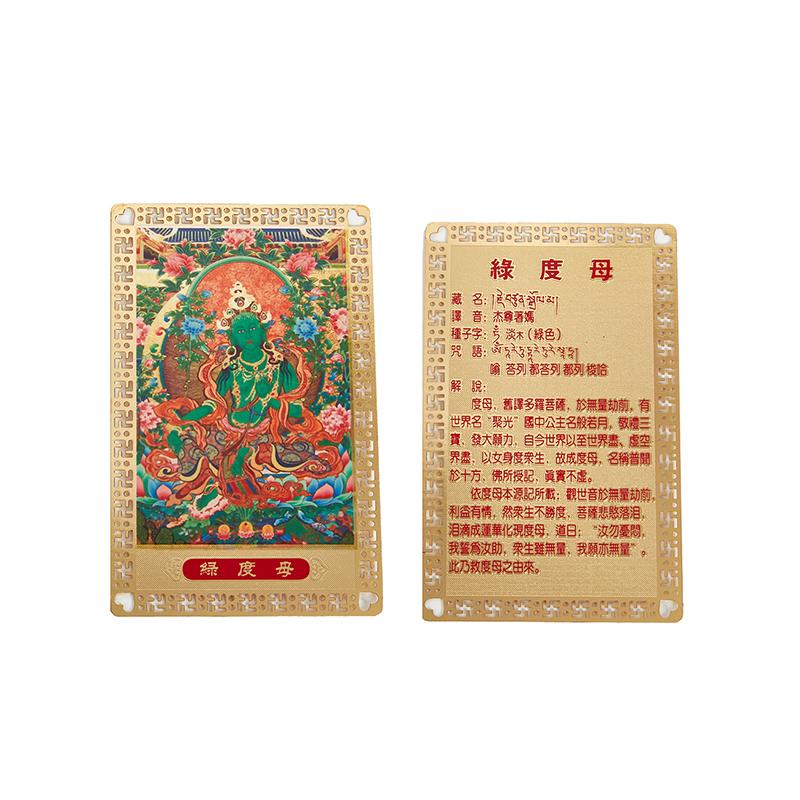 綠度母
綠度母
藏 名：རྗེ་བཙུན་སྒྲོལ་མ།
譯 音：杰尊着媽
種子字： 淡木（綠色）
咒 語：
嗡 答列 都答列 都列 梭哈
解 說：
度母，舊譯多羅菩薩，於無量劫前，有
世界名“聚光”國中公主名般若月，敬禮三
寶，發大願力，自今世界以至世界盡、虛空
界盡，以女身度衆生，故成度母，名稱普聞
於十方，佛所授記，眞實不虛。
依度母本源記所載：觀世音於無量劫前，
利益有情，然衆生不勝度，菩薩悲愍落泪，
泪滴成蓮華化現度母，道曰：“汝勿憂悶，
我誓爲汝助，衆生雖無量，我願亦無量”。
此乃救度母之由來。